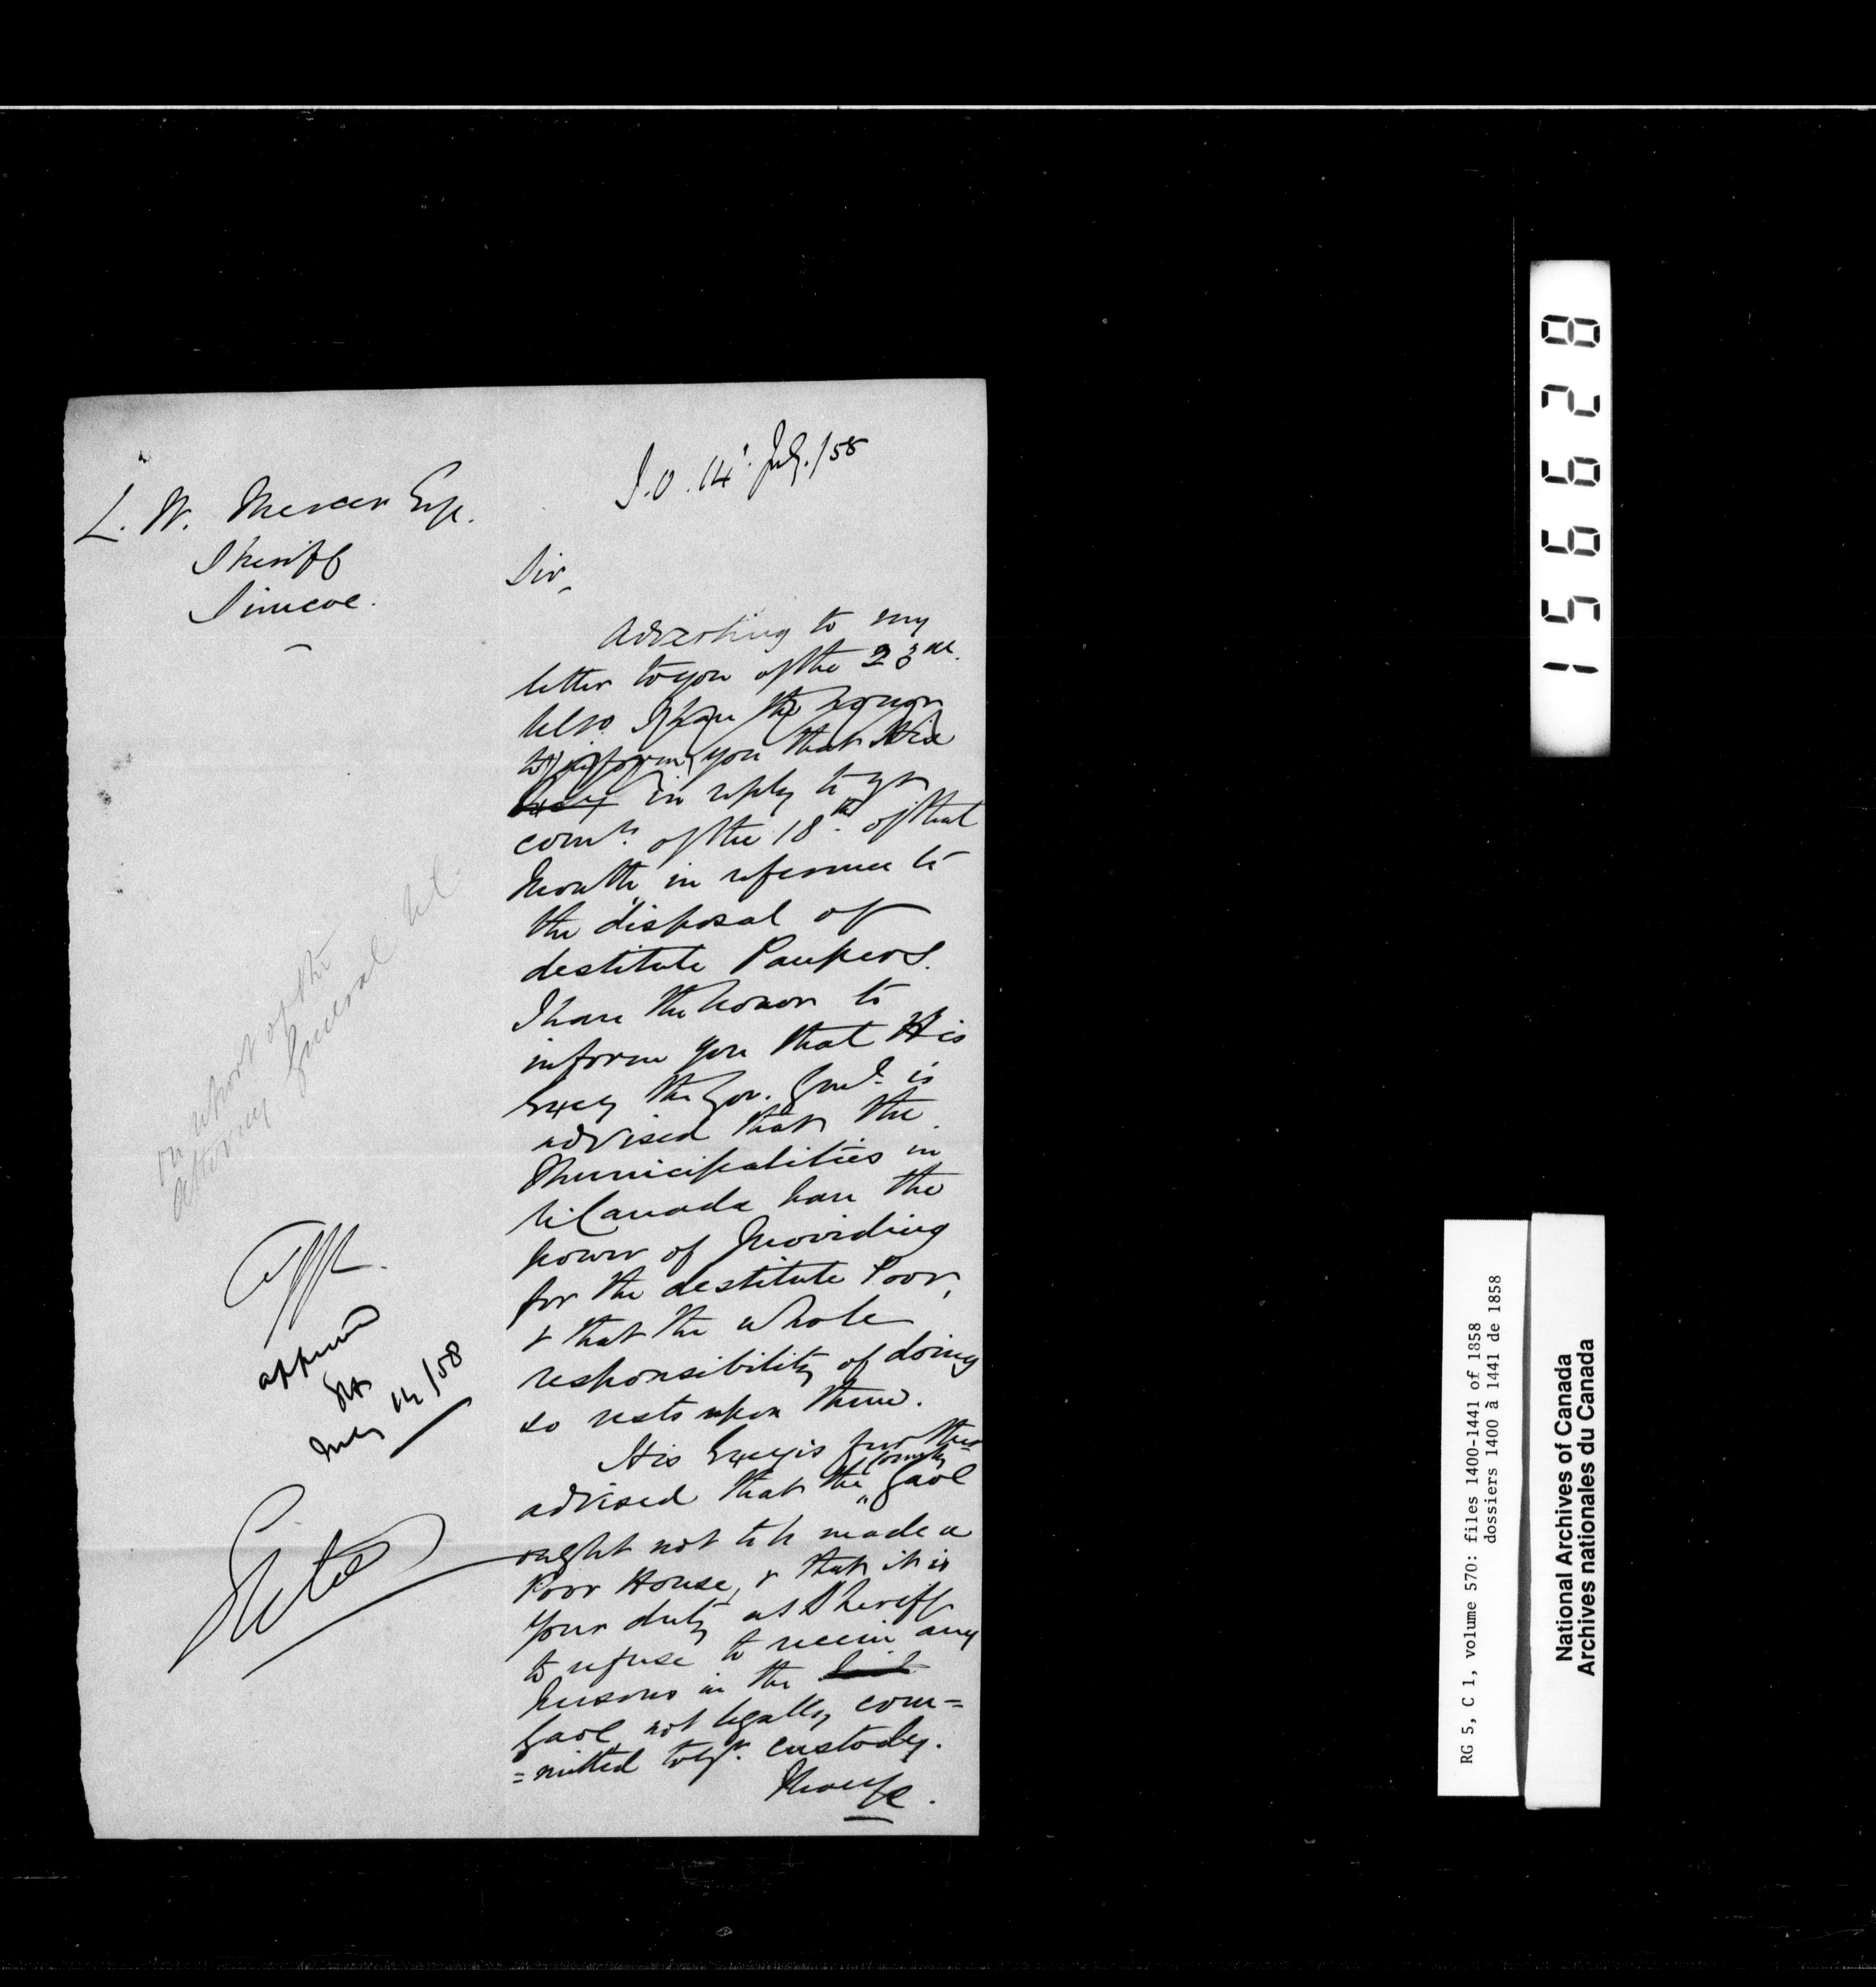 S.O. 14th July /58
L. W. Mercer Esq.
Sheriff
Simcoe.
Sir,
Adverting to my
letter to you of the 23rd
Ulto. I have the honor
to inform you that His
Excy in reply to yr
comn. of the 18th of that
Month, in reference to
the disposal of
destitute Paupers.
I have the honor to
inform you that His
Excy the Gov. Genl. is
advised that the
Municipalities in
U. Canada have the
power of providing
for the destitute Poor,
& that the whole
responsibility of doing
so rests upon them.
His Excy is further
advised that the County Gaol
ought not to be made a
Poor House, & that it is
your duty as Sheriff
to refuse to receive any
persons in the
Gaol, not legally com=
=mitted to yr. custody.
I have &c.
on report of the
Attorney General
approved
July 14 /58
156628
RG 5, C 1, volume 570: files 1400-1441 of 1858
dossiers 1400 à 1441 de 1858
National Archives of Canada
Archives nationales du Canada